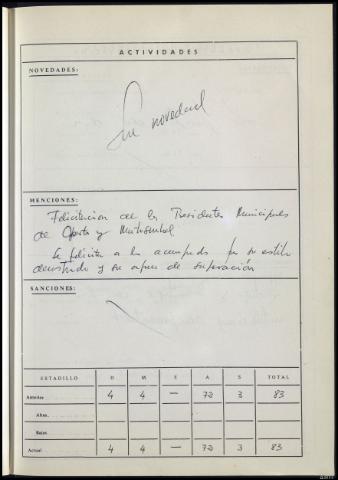 ACTIVIDADES
NOVEDADES:
Sin novedad
MENCIONES:
Felicitación de los Presidentes Municipales
de y
Se felicita a los acampados por su estilo
demostrado y su afán de superación
SANCIONES:
ESTADILLO D M E A S TOTAL
Anterior 4 4 — 72 3 83
Altas
Bajas
Actual 4 4 — 72 3 83